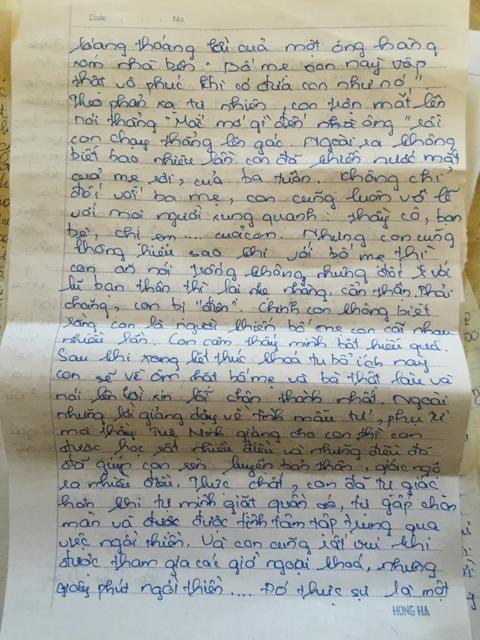 Date No.
loáng thoáng lời của một ông hàng
xóm nhà bên: "Bố mẹ con này vô
thật vô phúc khi có đứa con như nó"
Theo phản xạ tự nhiên, con trợn mắt lên
nói thẳng "Mới mớ gì đến nhà ông" rồi
con chạy thẳng lên gác. Ngoài ra không
biết bao nhiêu lần con đã khiến nước mắt
của mẹ rơi, của ba tuôn. Không chỉ
đối với ba mẹ, con cũng luôn vô lễ
với mọi người xung quanh: thầy cô, bạn
bè, chị em.... của con. Nhưng con cũng
không hiểu sao khi với bố mẹ thì
con ăn nói trống không, nhưng đối với
lũ bạn thân thì lại nhẹ nhàng, cẩn thận. Phải
chăng, con bị "điên". Chính con không biết
rằng con là người khiến bố mẹ con cãi nhau
nhiều lần. Con cảm thấy mình bất hiếu quá.
Sau khi xong kết thúc khoá tu bổ ích này
con sẽ về ôm chặt bố mẹ và bà thật lâu và
nói lên lời xin lỗi chân thành nhất. Ngoài
những lời giảng dạy về tình mẫu tử, phụ tử
mà thầy Tuệ Minh giảng cho con thì con
được học rất nhiều điều và những điều đó
đã giúp con rèn luyện bản thân, giác ngộ
ra nhiều điều. Thực chất, con đã tự giác
hơn khi tự mình giặt quần áo, tự gấp chăn
màn và được được tịnh tâm tập trung qua
việc ngồi thiền. Và con cũng rất vui khi
được tham gia các giờ ngoại khoá, những
giây phút ngồi thiền.... Đó thực sự là một
HONG HA